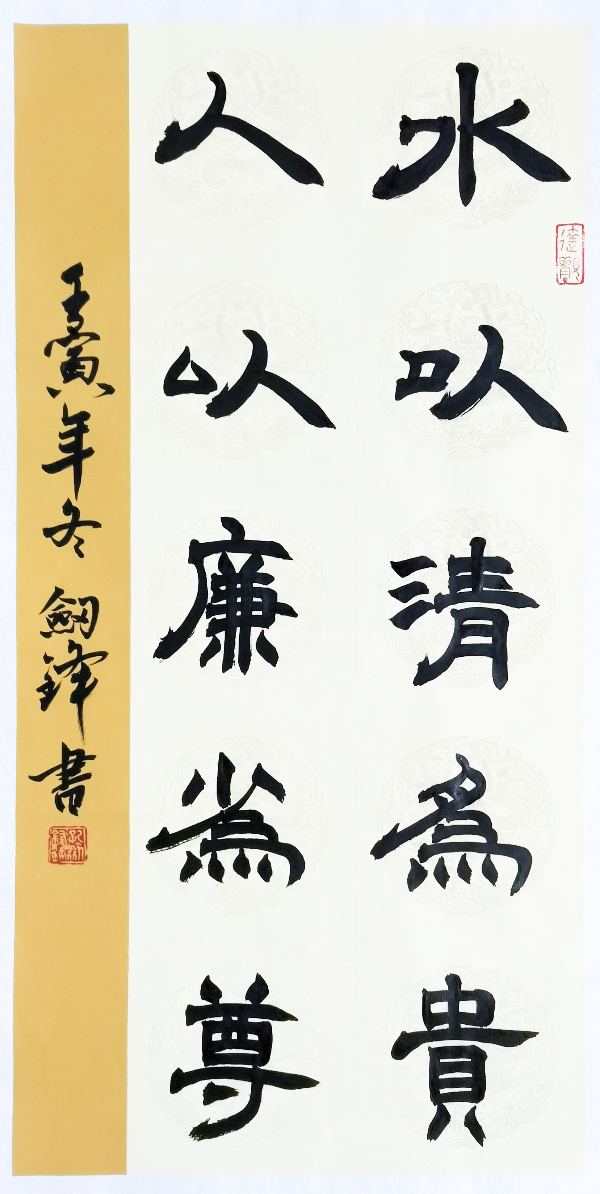 水以清為貴
人以廉為尊
壬寅年冬 劍鋒書